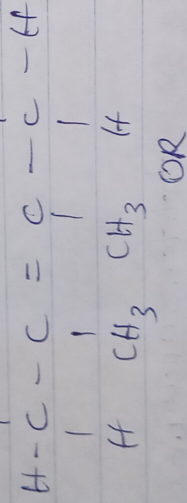 H - C - C = C - C - H
H CH3 CH3 H
OR